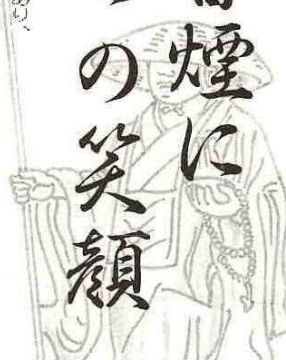 煙に
の笑顔